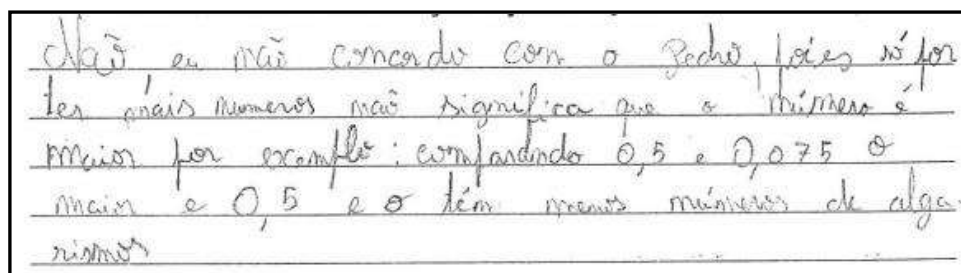 Não eu não concordo com o Pedro, pois só por
ter mais numeros não significa que o número é
maior por exemplo: comparando 0,5 e 0,075 o
maior e 0,5 e o têm menos números de alga-
rismos